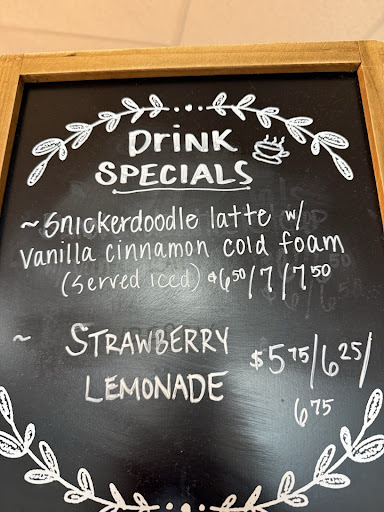 DRINK
SPECIALS
~ Snickerdoodle latte w/
vanilla cinnamon cold foam
(served iced) $6⁵⁰/7/7⁵⁰
~ STRAWBERRY
LEMONADE
$5⁷⁵/6²⁵/
6⁷⁵